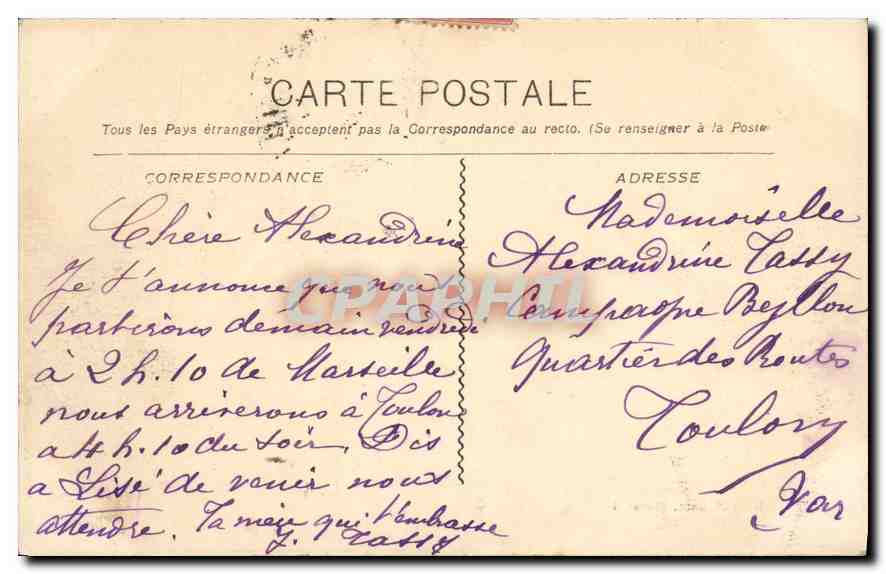 CARTE POSTALE
Tous les Pays étrangers n'acceptent pas la Correspondance au recto. (Se renseigner à la Poste
CORRESPONDANCE
Chère Alexandrine
Je t'annonce que nous
partirons demain vendredi
à 2 h. 10 de Marseille
nous arriverons à Toulon
a 4 h. 10 du soir. Dis
a Lisé de venir nous
attendre. Ta mère qui t'embrasse
J. Tassy
ADRESSE
Mademoiselle
Alexandrine Tassy
Campagne Beyllon
Quartier des Routes
Toulon
Var
CPARHIL